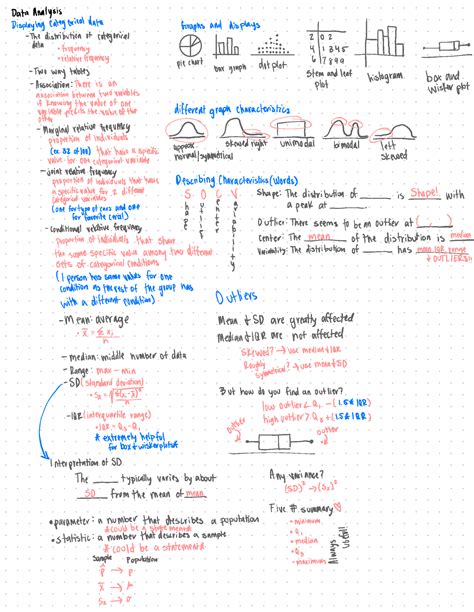 Data Analysis
Displaying Categorical data
- The distribution of categorical
data
• frequency
• relative frequency
- Two way tables
- Association: There is an
association between two variables
if knowing the value of one
variable predicts the value of the
other
- Marginal relative frequency
proportion of individuals
(ex: 32 of 100) that have a specific
value for one categorical variable
- Joint relative frequency
proportion of individuals that have
a specific value for 2 different
categorical variables
(one for type of cars and one
for favorite cereal)
- Conditional relative frequency
proportion of individuals that share
the same specific value among two different
sets of categorical conditions
(1 person has same value for one
condition as the rest of the group has
with a different condition)
- Mean: average
x̄ = Σxi / n
- median: middle number of data
- Range: max - min
- SD (standard deviation)
- IQR (interquartile range)
• IQR = Q3 - Q1
* extremely helpful
for box & wisker plots
Interpretation of SD
The ____ typically varies by about
SD from the mean of mean
• parameter: a number that describes a population
* could be a statement
• statistic: a number that describes a sample
* could be a statement
Sample Population
p̂ → p
x̄ → μ
Sx → σ
Graphs and displays
pie chart
bar graph
dot plot
2 | 0 2
4 | 1 3 4 5
6 |
Stem and leaf
plot
histogram
box and
wisker plot
different graph characteristics
approx
normal/symmetrical
skewed right
unimodal
bimodal
left
skewed
Describing Characteristics (Words)
S O C V
Shape
Outlier
Center
Variability
Shape: The distribution of ____ is Shape!
with a peak at ____.
Outlier: There seems to be an outlier at ( , )
Center: The mean of the distribution is median
Variability: The distribution of ____ has
& OUTLIERS!!
Outliers
Mean & SD are greatly affected
Median & IQR are not affected
Skewed? → use median & IQR
Roughly
symmetrical? → use mean & SD
But how do you find an outlier?
low outlier < Q1 - (1.5*IQR)
high outlier > Q3 + (1.5*IQR)
outlier
outlier
Any variance?
(SD)² → (Sx)²
Five # summary
• minimum
• Q1
• median
• Q3
• maximum
Always
Useful!